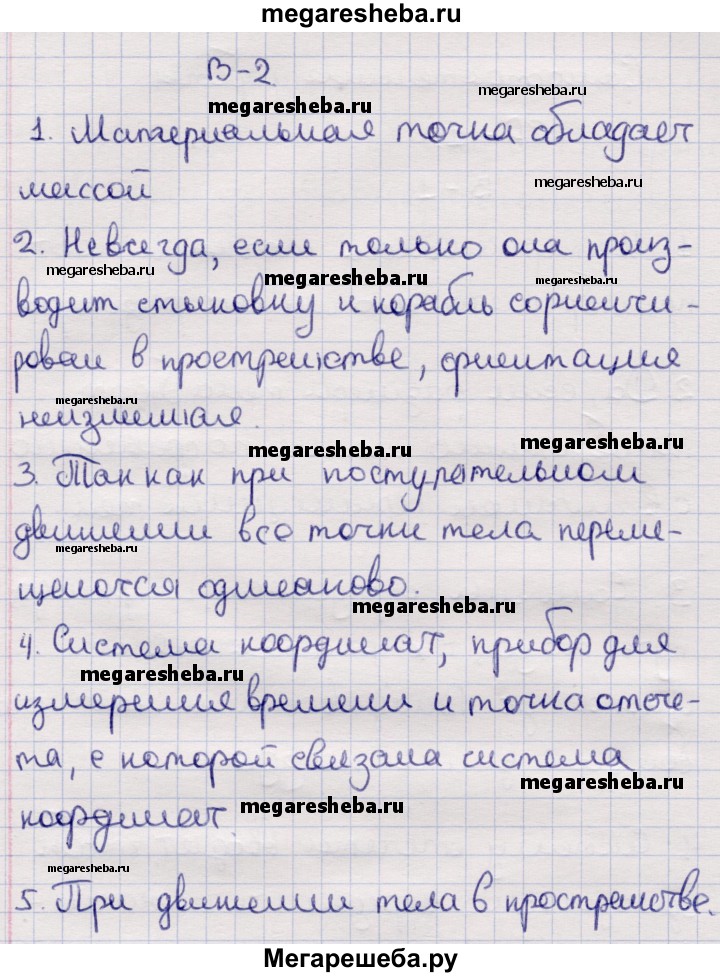 megaresheba.ru
В-2
megaresheba.ru
megaresheba.ru
1. Материальная точка обладает
массой
megaresheba.ru
2. Невсегда, если только она произ-
megaresheba.ru
megaresheba.ru
megaresheba.ru
водит стыковку и корабль сориенти-
рован в пространстве, ориентация
неизменная.
megaresheba.ru
megaresheba.ru
3. Так как при поступательном
движении все точки тела переме-
megaresheba.ru
щаются одинаково.
megaresheba.ru
4. Система координат, прибор для
megaresheba.ru
измерения времени и точка отсче-
та, с которой связана система
megaresheba.ru
координат.
megaresheba.ru
megaresheba.ru
5. При движении тела в пространстве.
Мегарешеба.ру